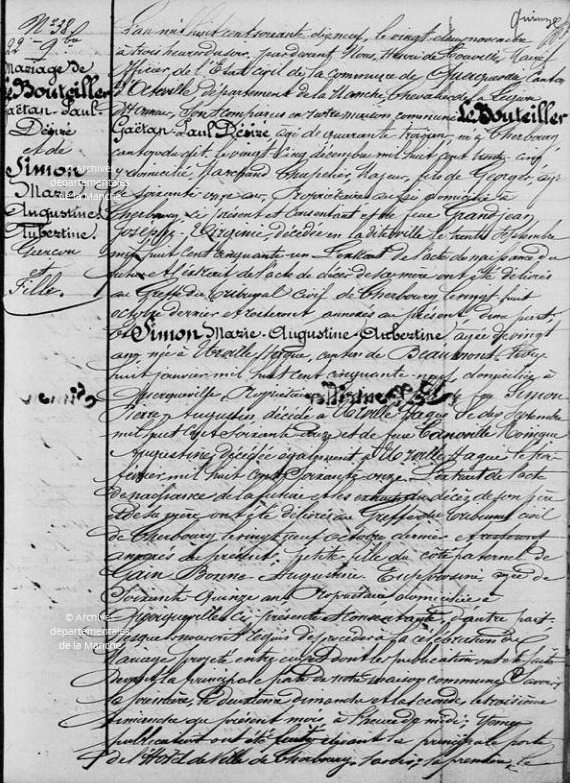 N° 38
22 9bre
Mariage de
Le Bouteiller
Gaëtan-Paul-
Désiré
et de
Simon
Marie
Augustine
Aubertine.
Garçon
et
Fille.
L'an mil huit cent soixante dix neuf, le vingt deux novembre
à trois heures du soir, par devant Nous, Maire
Officier de l'Etat civil de la commune de Canton
d'Octeville département de la Manche, Chevalier de la Légion
d'Honneur, Sont comparus en notre maison commune Le Bouteiller
Gaëtan Paul Désiré âgé de quarante trois ans, né à Cherbourg
canton dudit, le vingt cinq décembre mil huit cent trente cinq
y domicilié, Majeur, fils de Georges âgé
de soixante onze ans, Propriétaire domicilié à
Cherbourg, ci présent et consentant et de feue Grandjean
Joséphine Virginie décédée en la dite ville le trente Septembre
mil huit cent cinquante un. L'extrait de l'acte de naissance du
futur et l'extrait de l'acte de décès de sa mère ont été délivrés
au Greffe du Tribunal civil de Cherbourg le vingt huit
octobre dernier et resteront annexés au présent d'une part.
Et Simon Marie-Augustine-Aubertine, âgée de vingt
ans, née à Urville Hague, canton de Beaumont, le
huit janvier mil huit cent cinquante neuf domiciliée à
Querqueville Propriétaire Mineure, Fille de feu Simon
Pierre Augustin décédé à Urville Hague le dix Septembre
mil huit cent soixante et de feue Canoville Monique
Augustine, décédée également à Urville Hague le trois
février mil huit cent soixante onze. L'extrait de l'acte
de naissance de la future et les extraits du décès de son père
et de sa mère ont été délivrés au Greffe du Tribunal civil
de Cherbourg le vingt neuf octobre dernier et resteront
annexés au présent, petite fille du côté paternel de
Bonne Augustine Euphrosine, âgée de
soixante-quinze ans Propriétaire domiciliée à
Querqueville, ci présente et consentante, d'autre part.
Lesquels nous ont requis de procéder à la célébration du
Mariage projeté entre eux et dont les publications ont été faites
devant la principale porte de notre maison commune, Savoir:
la première, le deuxième dimanche et la seconde, le troisième
dimanche du présent mois à l'heure de midi;
publications ont été faites devant la principale porte
de l'Hôtel de Ville de Cherbourg, Savoir: la première, le
© Archives
départementales
de la Manche
© Archives
départementales
de la Manche